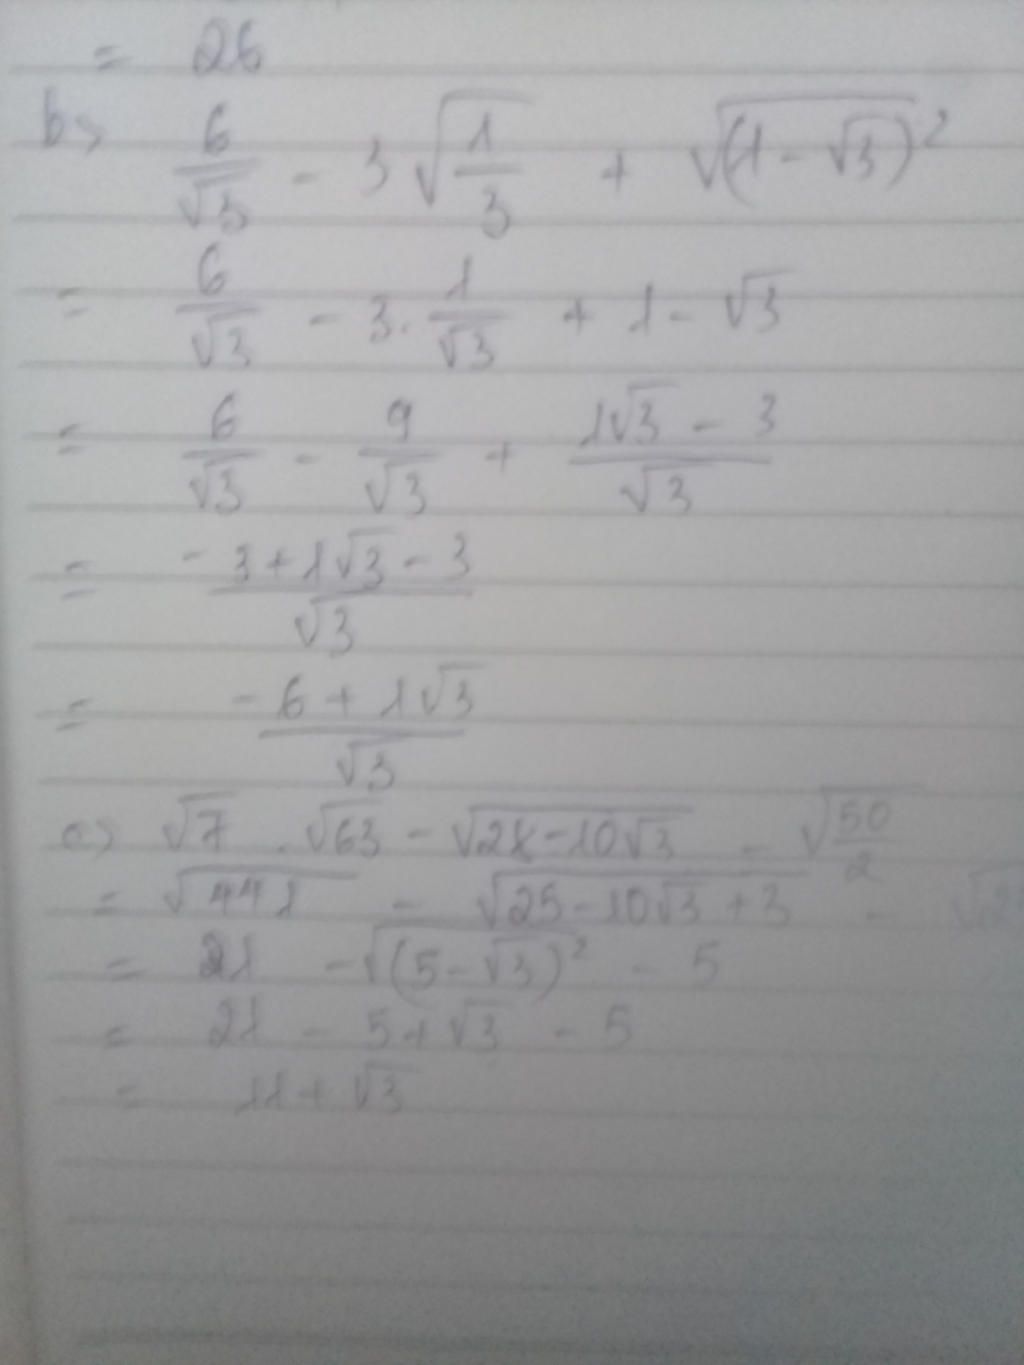 = 26
b> 6/√3 - 3√(1/3) + √(1 - √3)²
= 6/√3 - 3. 1/√3 + 1 - √3
= 6/√3 - 9/√3 + (1√3 - 3)/√3
= (- 3 + 1√3 - 3)/√3
= (- 6 + 1√3)/√3
c> √7 . √63 - √(28 - 10√3) - √(50/2)
= √441 - √(25 - 10√3 + 3) -
= 21 - √(5 - √3)² - 5
= 21 - 5 + √3 - 5
= 11 + √3